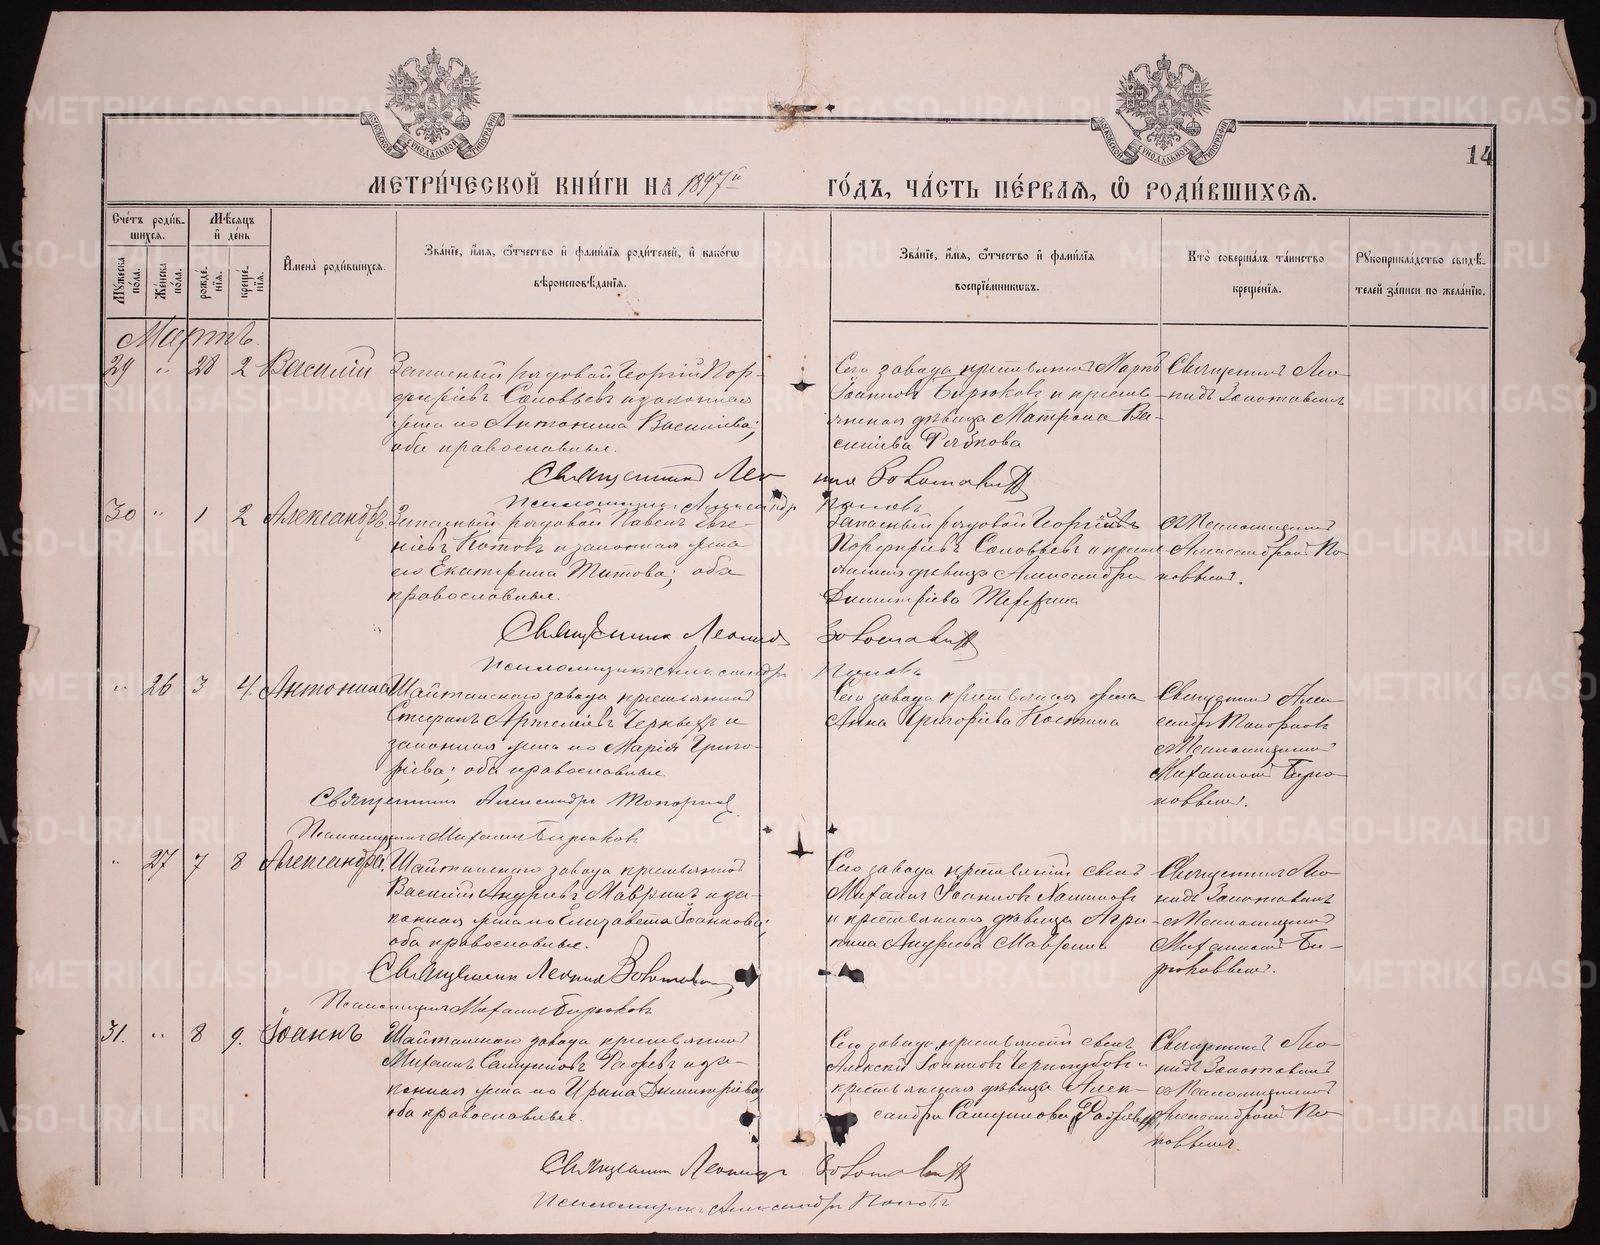 14
МЕТРИ́ЧЕСКОЙ КНИ́ГИ НА 1897й ГО́ДЪ, ЧА́СТЬ ПЕ́РВАЯ, Ѡ РОДИ́ВШИХСЯ.
Сче́тъ роди́в-
шихся.
Му́жеска
по́ла.
Же́нска
по́ла.
Мѣ́сяцъ
и҆ де́нь
рожде́-
нїя.
креще́-
нїя.
И҆мена̀ роди́вшихся.
Зва́нїе, и҆́мя, ѻ҆́тчество и҆ фами́лїя роди́телей, и҆ како́гѡ
вѣроисповѣ́данїя.
Зва́нїе, и҆́мя, ѻ҆́тчество и҆ фами́лїя
воспрїе́мникѡвъ.
Кто̀ соверша́лъ та́инство
креще́нїя.
Рꙋкоприкла́дство свидѣ́-
телей за́писи по жела́нїю.
Мартъ.
29 " 28 2 Василій
Запасный рядовой Георгій Пор-
фиріевъ Соловьевъ и законная
жена его Антонина Василіева;
оба православные.
Сего завода крестьянинъ Маркъ
Іоанновъ Бирюковъ и кресть-
янская дѣвица Матрона Ва-
силіева Рябкова
Священникъ Лео-
нидъ Золотавинъ
Священникъ Леонид Золотавин
Псаломщикъ Александръ Поповъ
30 " 1 2 Александръ
Запасный рядовой Павелъ Евге-
ніевъ Котовъ и законная жена
его Екатерина Титова; оба
православные.
Запасный рядовой Георгій
Порфиріевъ Соловьевъ и кресть-
янская дѣвица Александра
Димитріева
съ Псаломщикомъ
Александромъ По-
повымъ.
Священникъ Леонид Золотавин
Псаломщикъ Александръ Поповъ
" 26 3 4. Антонина
Шайтанскаго завода крестьянинъ
Стефанъ Артеміевъ Черныхъ и
законная жена его Марія Григо-
ріева; оба православные
Сего завода крестьянская жена
Анна Григоріева Костина
Священникъ Алек-
сандръ Топорковъ
съ Псаломщикомъ
Михаиломъ Бирю-
ковымъ.
Священникъ Александръ Топорков
Псаломщикъ Михаилъ Бирюковъ
" 27 7 8 Александра.
Шайтанскаго завода крестьянинъ
Василій Андреевъ Мавринъ и за-
конная жена его Елизавета Іоаннова;
оба православные.
Сего завода крестьянскій сынъ
Михаилъ Іоанновъ
и крестьянская дѣвица Агри-
пина Андреева Маврина
Священникъ Лео-
нидъ Золотавинъ
съ Псаломщикомъ
Михаиломъ Би-
рюковымъ.
Священникъ Леонид Золотавин
Псаломщикъ Михаилъ Бирюковъ
31. " 8 9. Іоаннъ
Шайтанскаго завода крестьянинъ
Михаилъ Самуиловъ и за-
конная жена его Ирина Димитріева;
оба православные.
Сего завода крестьянскій сынъ
Алексѣй Іоанновъ и
крестьянская дѣвица Алек-
сандра Самуилова
Священникъ Лео-
нидъ Золотавинъ
съ Псаломщикомъ
Александромъ По-
повымъ.
Священникъ Леонидъ Золотавин
Псаломщикъ Александръ Поповъ
METRIKI.GASO-URAL.RU